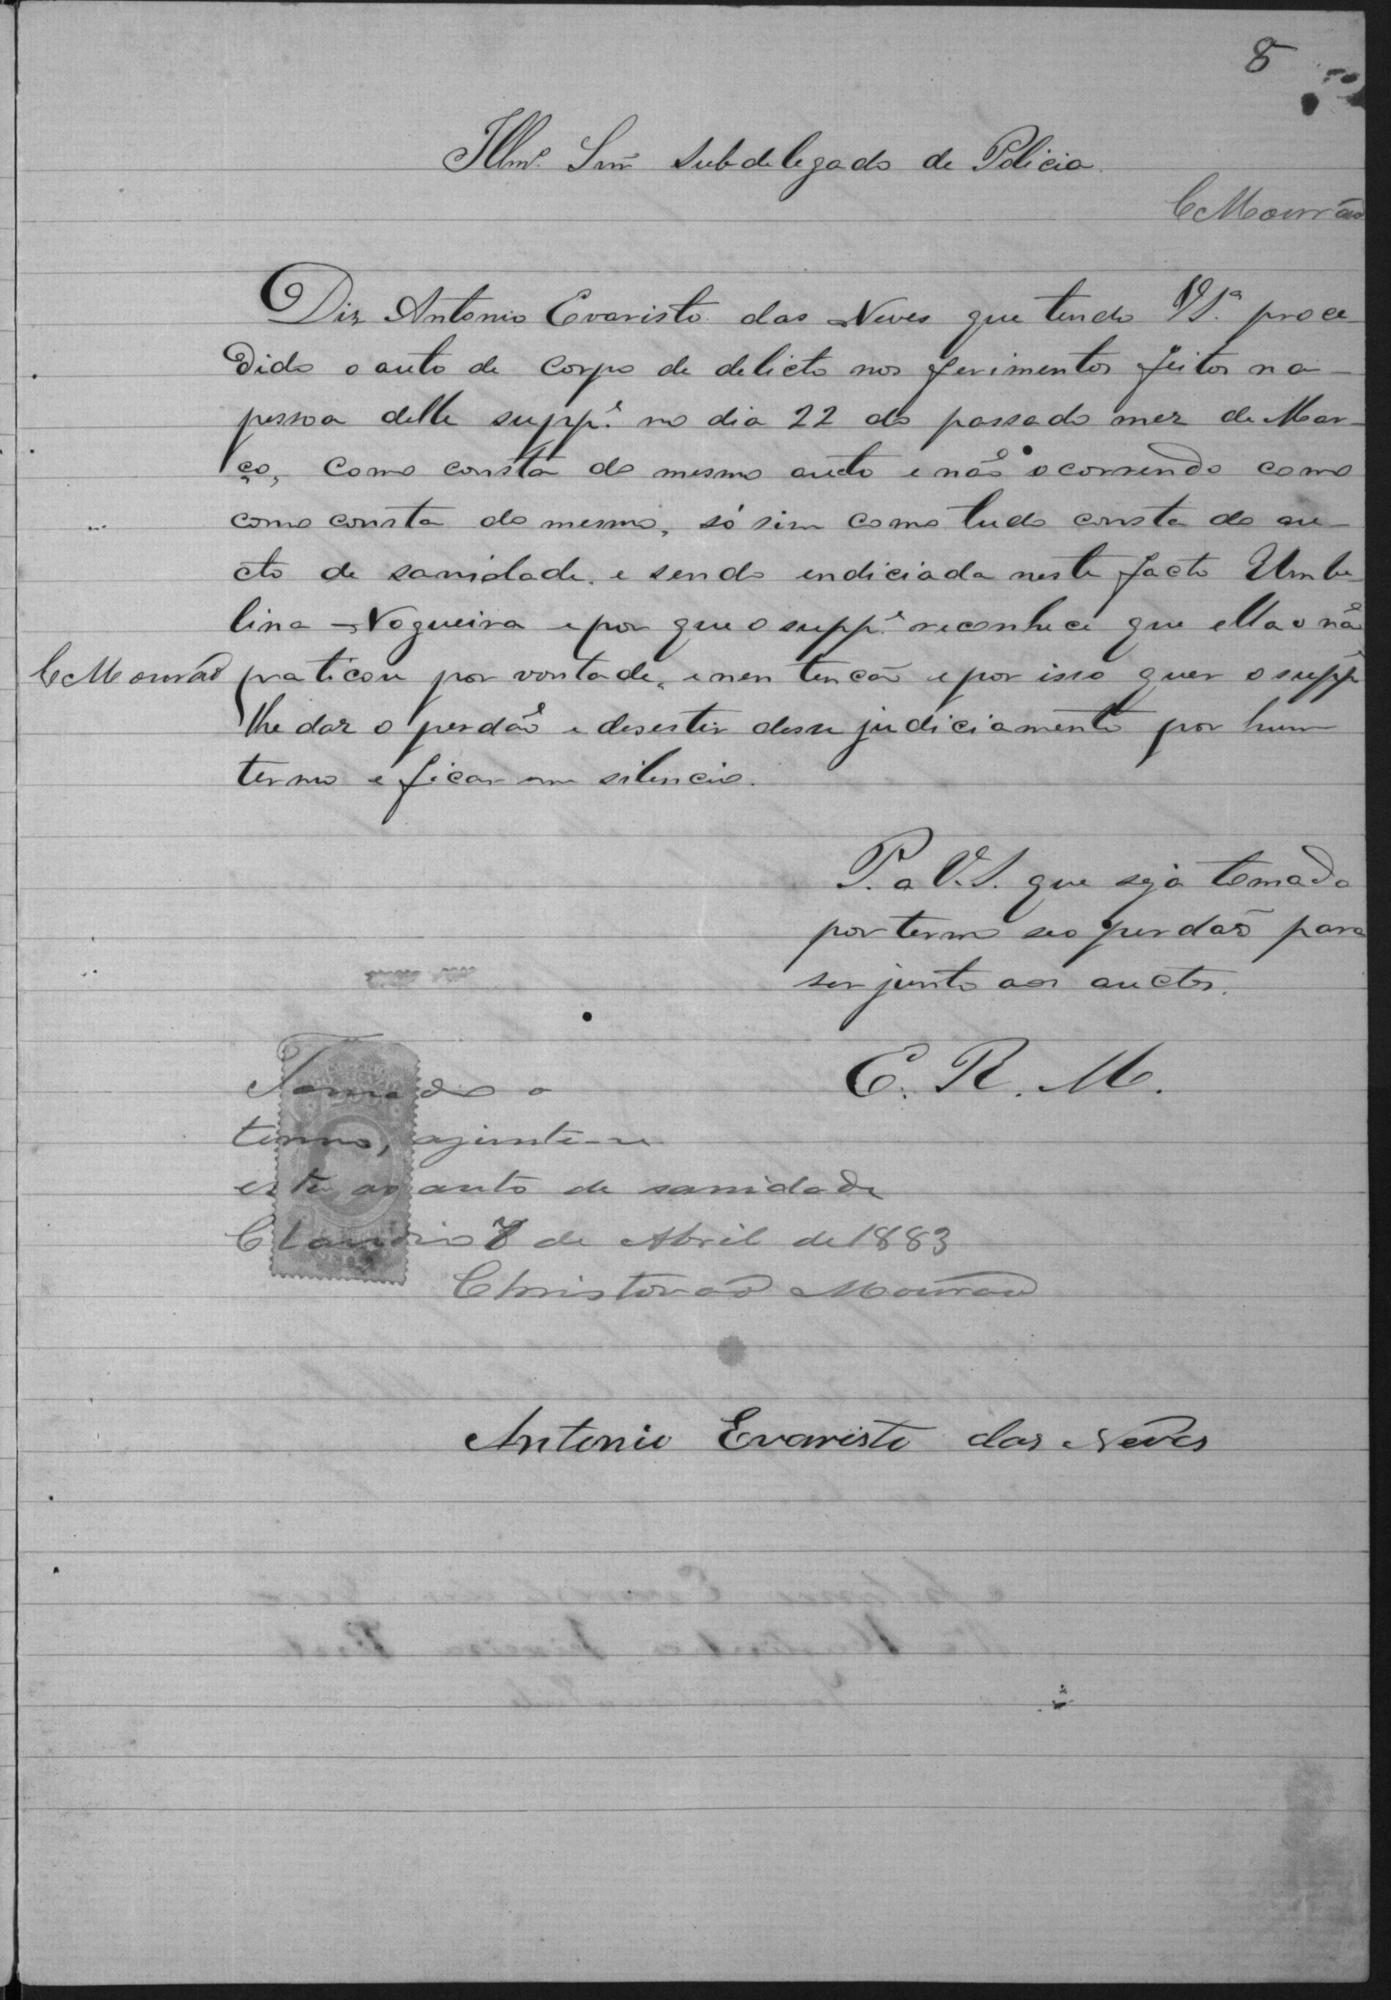 8
Illmº. Snr̃ Subdelegado de Policia.
C Mourão
Diz Antonio Evaristo das Neves que tendo V Sª. proce-
dido o auto de corpo de delicto nos ferimentos feitos na-
pessoa delle supp.e no dia 22 do passado mez de Mar-
ço, como consta do mesmo aucto e não ocorrendo como
como consta do mesmo, só sim como tudo consta do au-
cto de sanidade. e sendo endiciada neste facto Umbe-
lina Nogueira e por que o supp.e reconhece que ella o não
C Mourão praticou por vontade, e nen tencão e por isso quer o supp.e
lhe dar o perdão e desestir desse judiciamento por hum
termo e ficar em silencio.
P. a V. S. que seja tomado
por termo seo perdão para
ser junto aos auctos.
E. R. M.
Tomado o
termo, ajunte-se
este ao auto de sanidade
Claudio 7 de Abril de 1883
Christovão Mourão
Antonio Evaristo das Neves